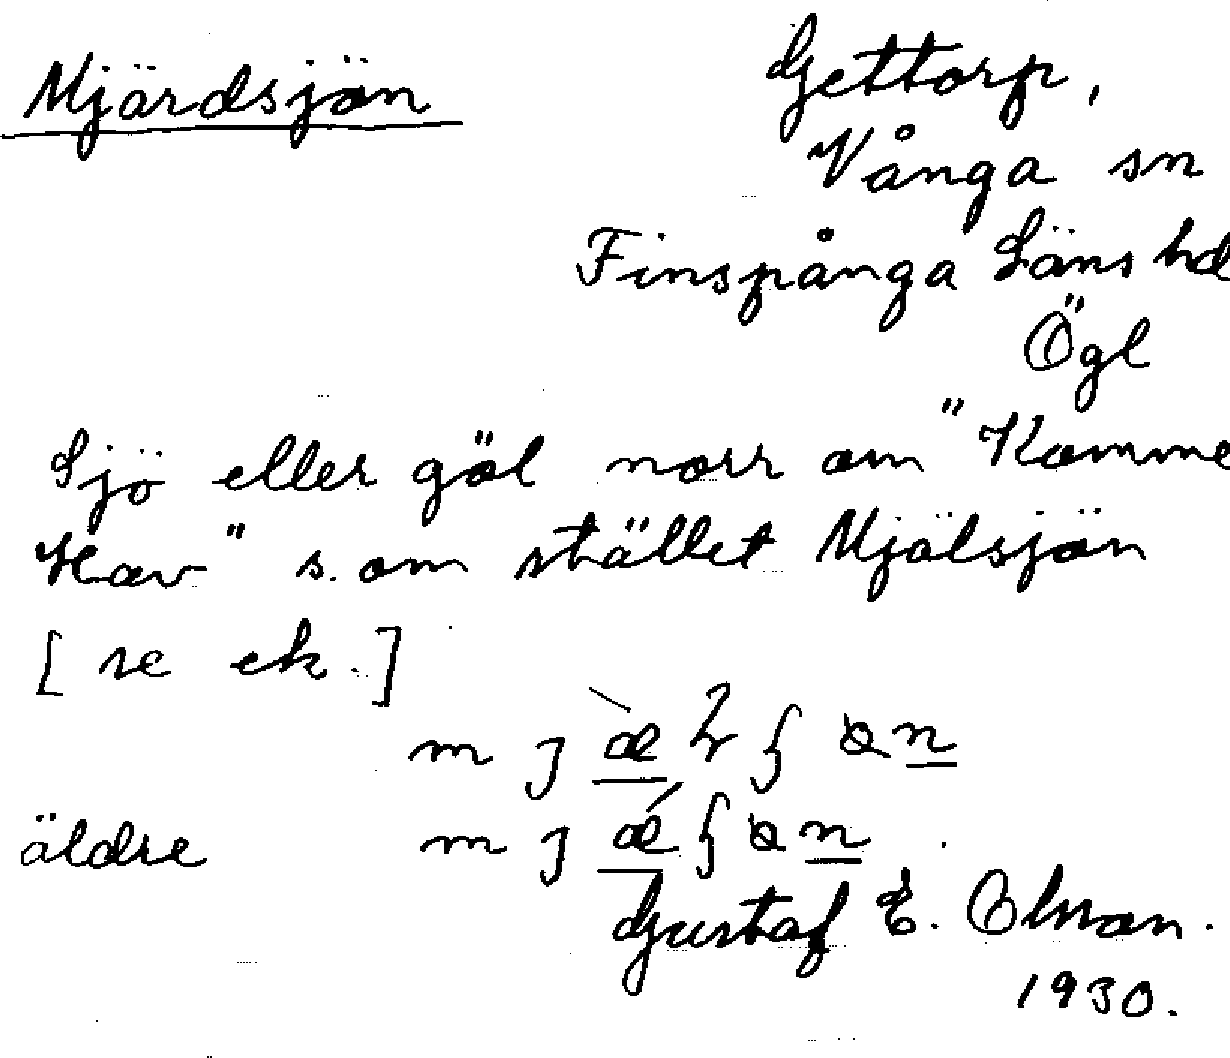 Mjärdsjön
Gettorp,
Vånga sn
Finspånga Läns hd
Ögl
Sjö eller göl norr om "Komme
Hav" s. om stället Mjölsjön
[se ek.]
äldre
Gustaf E. Olsson.
1930.